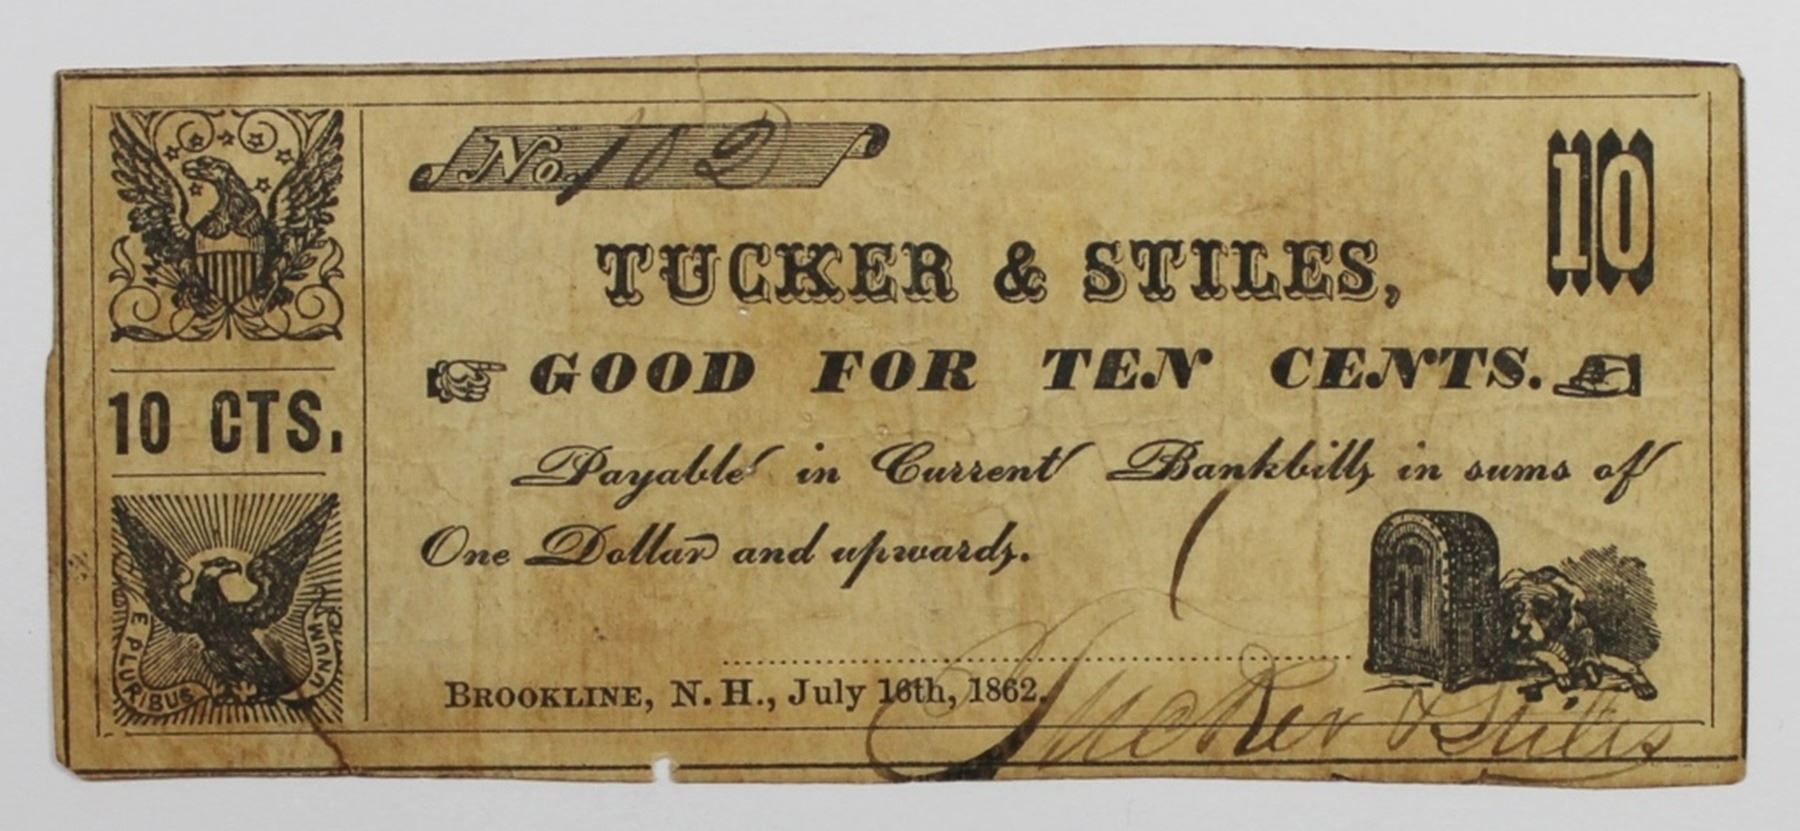 No. 102
10
TUCKER & STILES,
GOOD FOR TEN CENTS.
10 CTS.
Payable in Current Bankbills in sums of
One Dollar and upwards.
E PLURIBUS UNUM
BROOKLINE, N. H., July 16th, 1862.
Tucker & Stiles